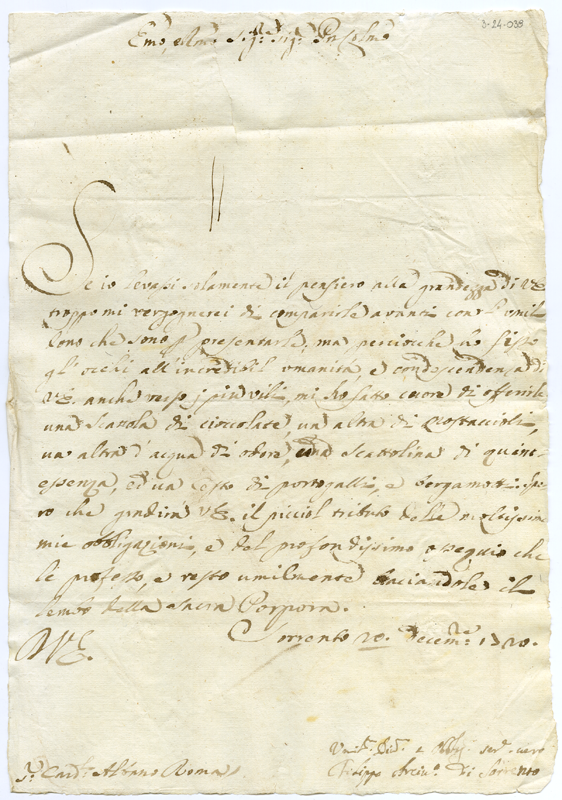 3-24-038
Emo, e Rmo Sig.r Sig.r Pne Colmo
Se io levassi solamente il pensiero alla grandezza di VE
troppo mi vergognerei di comparirle avanti con l'umil
dono che sono p presentarle; ma perciocche hò fisso
gl'occhi all'incredibil umanità, e condescendenza di
VE. anche verso i più vili, mi hò fatto cuore di offerirle
una scattola di cioccolate, un altra di mostaccioli,
un altra d'acqua di odore, una scattolina di quint
essenza, ed un cesto di portogalli, e bergamotti. Spe
ro che gradirà VE. il picciol tributo delle moltissime
mie obbligazioni, e del profondissimo ossequio che
le professo, e resto umilmente baciandole il
lembo della Sacra Porpora.
Sorrento 20. Decem.e 1720.
D VE.
S.r Card.l Albano Roma
Um.o Div.o e Obb.o ser.e vero
Filippo Arciv.o di Sorrento